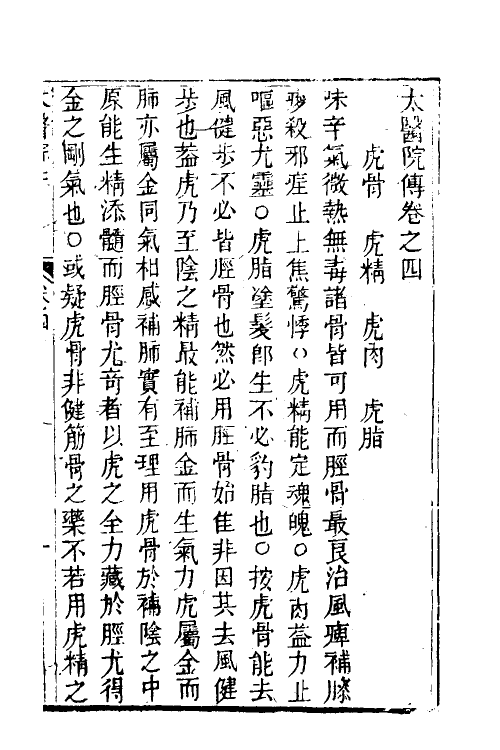 太醫院傳卷之四
虎骨　虎精　虎肉　虎脂
味辛氣微熱無毒諸骨皆可用而脛骨最良治風痺補膝
殺邪疰止上焦驚悸〇虎精能定魂魄〇虎肉益力止
嘔惡尤靈〇虎脂塗髮卽生不必豹脂也〇按虎骨能去
風健步不必皆脛骨也然必用脛骨始佳非因其去風健
步也葢虎乃至陰之精最能補肺金而生氣力虎屬金而
肺亦屬金同氣相感補肺實有至理用虎骨於補陰之中
原能生精添髓而脛骨尤竒者以虎之全力藏於脛尤得
金之剛氣也〇或疑虎骨非健筋骨之藥不若用虎精之